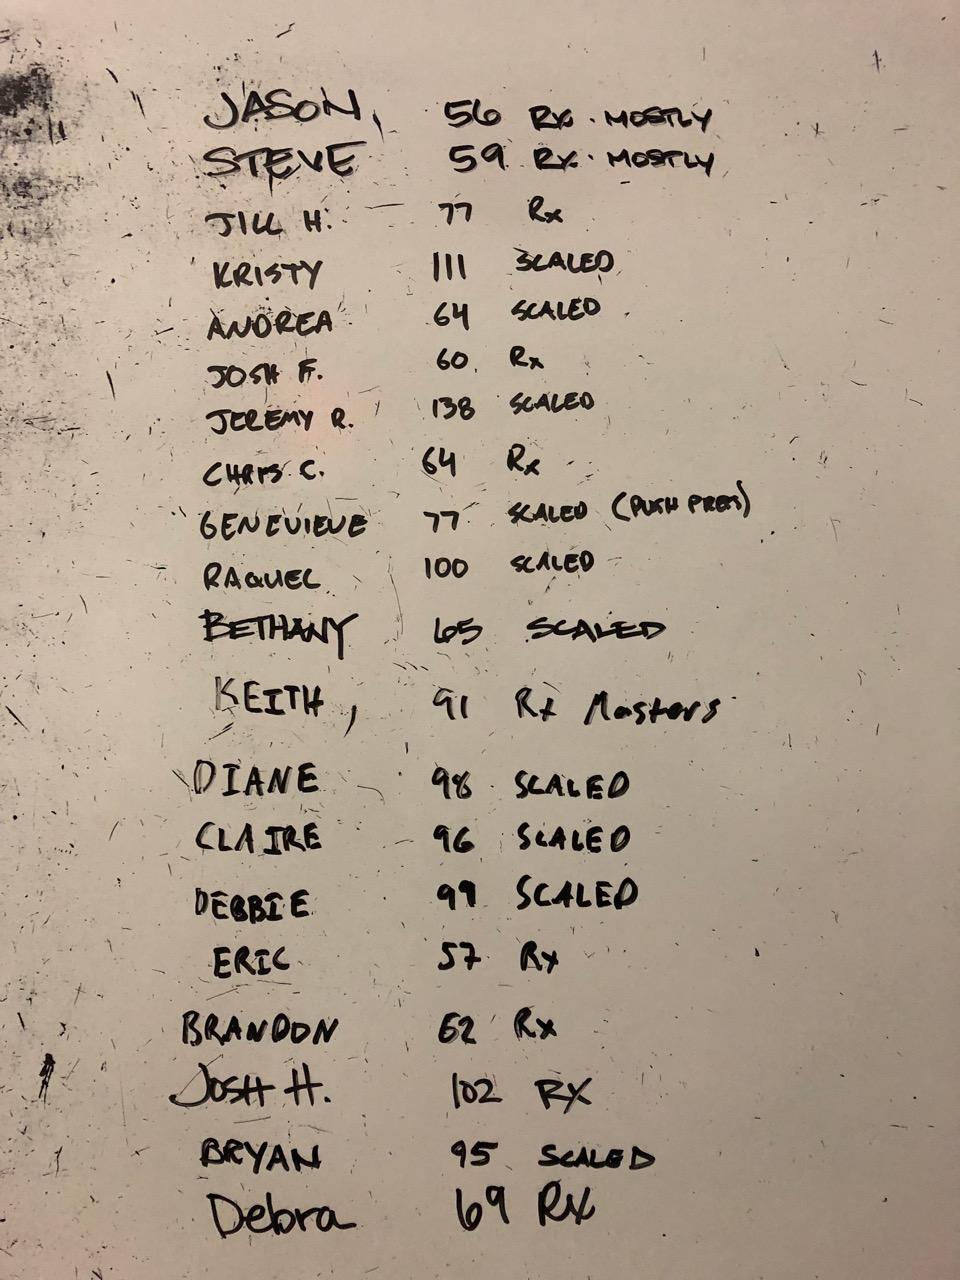 JASON 56 RX · MOSTLY
STEVE 59 RX · MOSTLY
JILL H. 77 Rx
KRISTY 111 SCALED
ANDREA 64 SCALED
JOSH F. 60 Rx
JEREMY R. 138 SCALED
CHRIS C. 64 Rx
GENEVIEVE 77 SCALED (PUSH PRESS)
RAQUEL 100 SCALED
BETHANY 65 SCALED
KEITH, 91 Rx Masters
DIANE 98 SCALED
CLAIRE 96 SCALED
DEBBIE 99 SCALED
ERIC 57 Rx
BRANDON 62 Rx
JOSH H. 102 RX
BRYAN 95 SCALED
Debra 69 RX